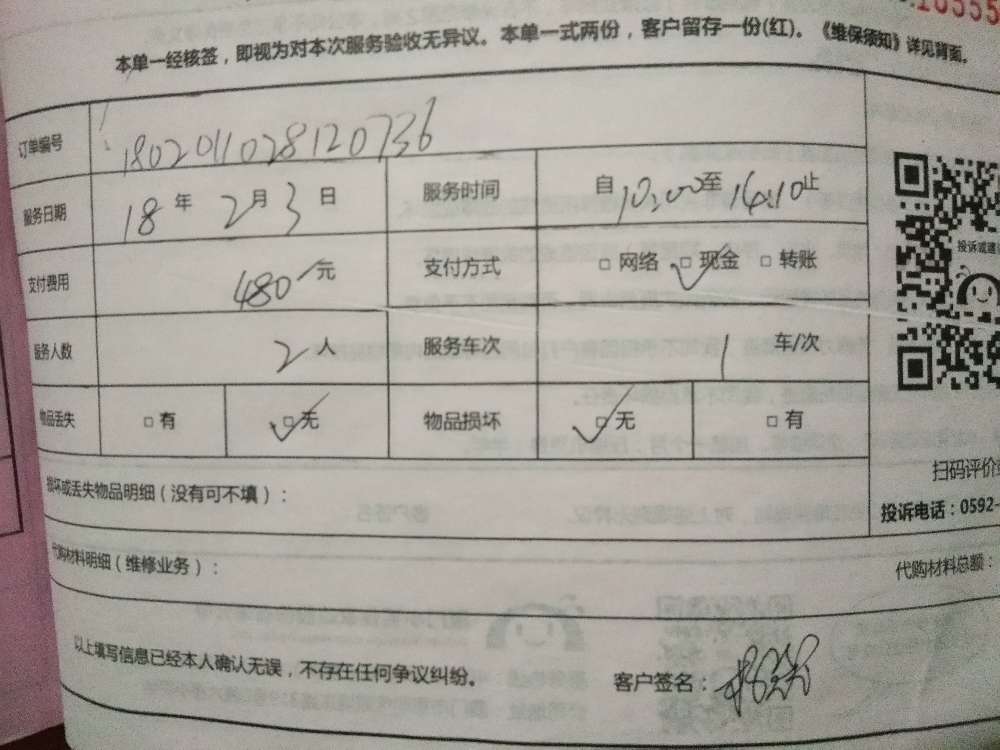 本单一经核签，即视为对本次服务验收无异议。本单一式两份，客户留存一份(红)。《维保须知》详见背面。
订单编号 1802011028120736
服务日期 18 年 2 月 3 日 服务时间 自 10:00 至 16:10 止
支付费用 480 元 支付方式 □ 网络 □ 现金 □ 转账
服务人数 2 人 服务车次 1 车/次
物品丢失 □ 有 □ 无 物品损坏 □ 无 □ 有
扫码评价
损坏或丢失物品明细（没有可不填）：
投诉电话：0592-
代购材料明细（维修业务）：
代购材料总额：
以上填写信息已经本人确认无误，不存在任何争议纠纷。
客户签名：